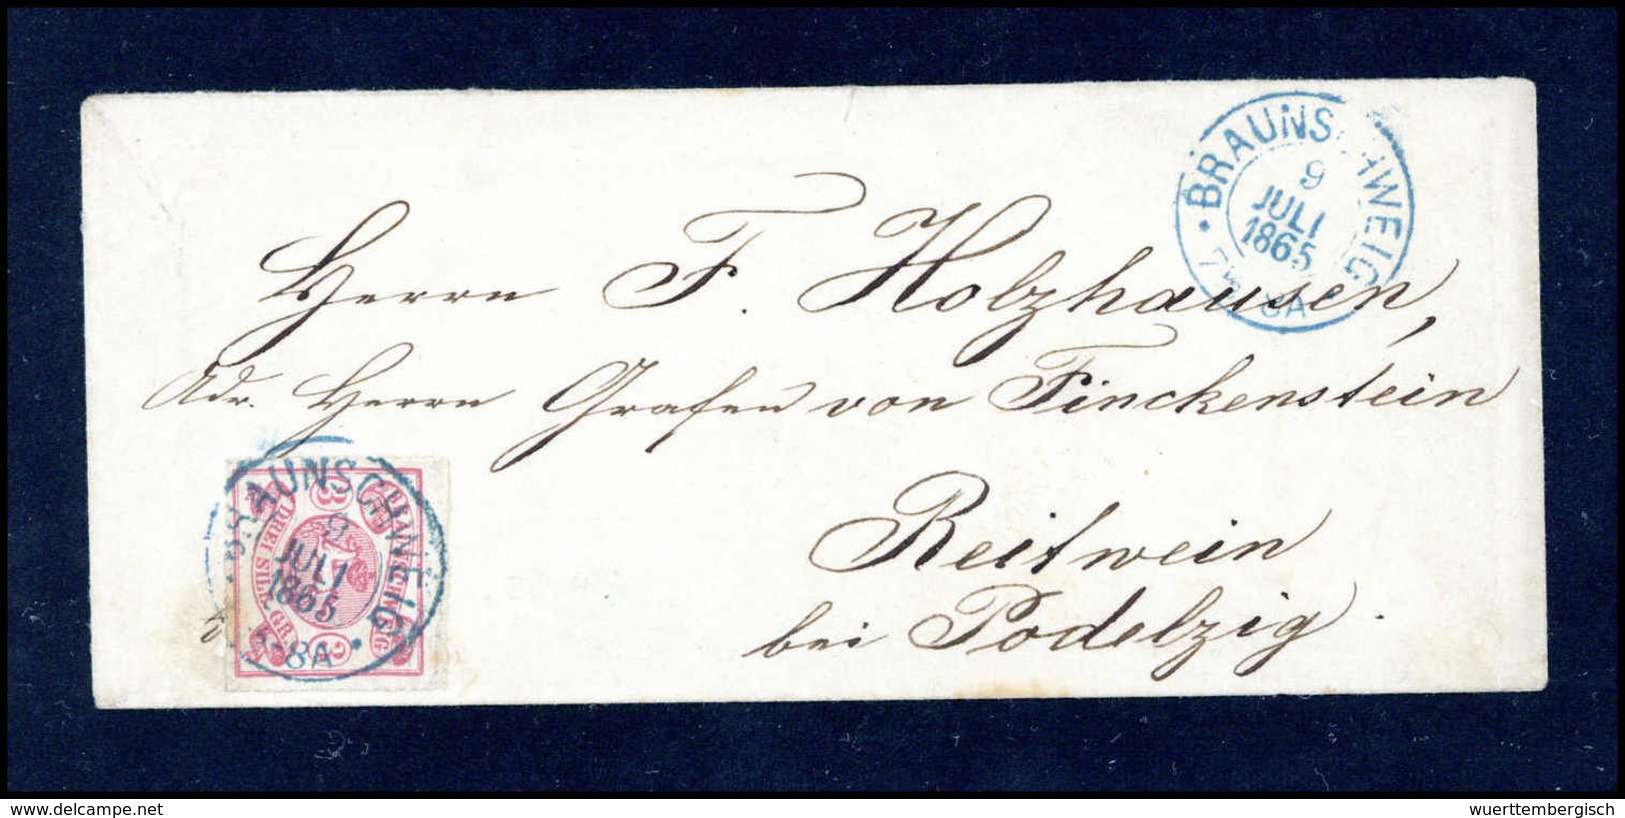 BRAUNSCHWEIG
9
JULI
1865
7½-8A
Herrn F. Holzhausen,
Adr. Herrn Grafen von Finckenstein
Reitwein
bei Podelzig.
BRAUNSCHWEIG
9
JULI
1865
-8A
BRAUNSCHWEIG
3
DREI SILB. GR.
3
www.delcampe.net
wuerttembergisch